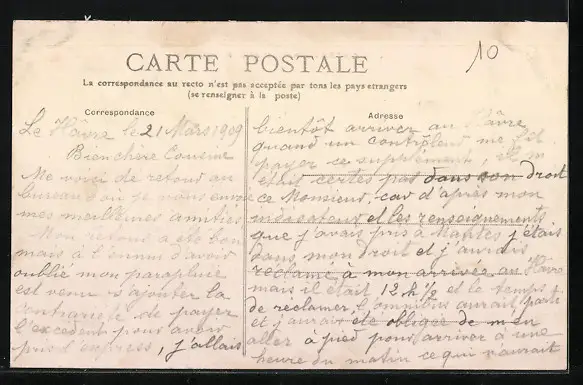 10
CARTE POSTALE
La correspondance au recto n'est pas acceptée par tous les pays etrangers
(se renseigner à la poste)
Correspondance
Le Hâvre le 21 Mars 1909
Bien chère Cousine
Me voici de retour au
bureau d'où je vous envoie
mes meilleures amitiés
Mon retour a été bon
mais à l'ennui d'avoir
oublié mon parapluie
est venu s'ajouter la
contrariété de payer
l'excédent pour avoir
pris l'express, j'allais
Adresse
bientôt arriver au Hâvre
quand un contrôleur me fit
payer ce supplément, il n'
était certes pas dans son droit
ce Monsieur, car d'après mon
indicateur et les renseignements
que j'avais pris à Nantes j'étais
dans mon droit et j'aurais
réclamé à mon arrivée au Hâvre
mais il était 12 h ½ et le temps
de réclamer, l'omnibus aurait parti
et j'aurais été obligé de m'en
aller à pied pour arriver à une
heure du matin ce qui n'aurait